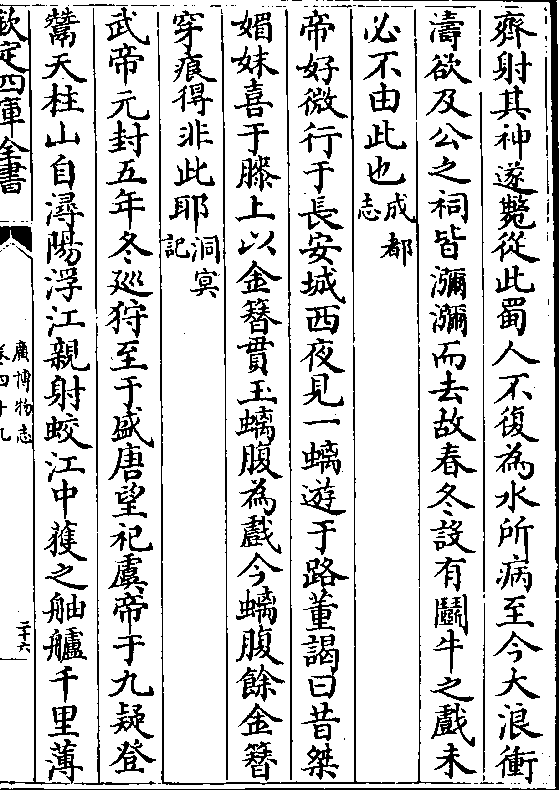 齊射其神遂斃從此蜀人不復為水所病至今大浪衝
濤欲及公之祠皆瀰瀰而去故春冬設有鬬牛之戲未
必不由此也成都志
帝好微行于長安城西夜見一螭遊于路董謁曰昔桀
媚妹喜于膝上以金簪貫玉螭腹為戲今螭腹餘金簪
穿痕得非此耶洞冥記
武帝元封五年冬廵狩至于盛唐望祀虞帝于九疑登
鷩天柱山自潯陽浮江親射蛟江中獲之舳艫千里薄
欽定四庫全書
廣博物志
卷四十九
二十六